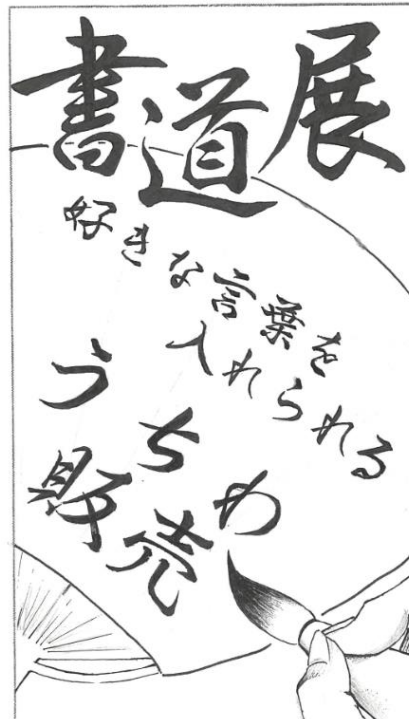 書道展
好きな言葉を
入れられる
うちわ
販売